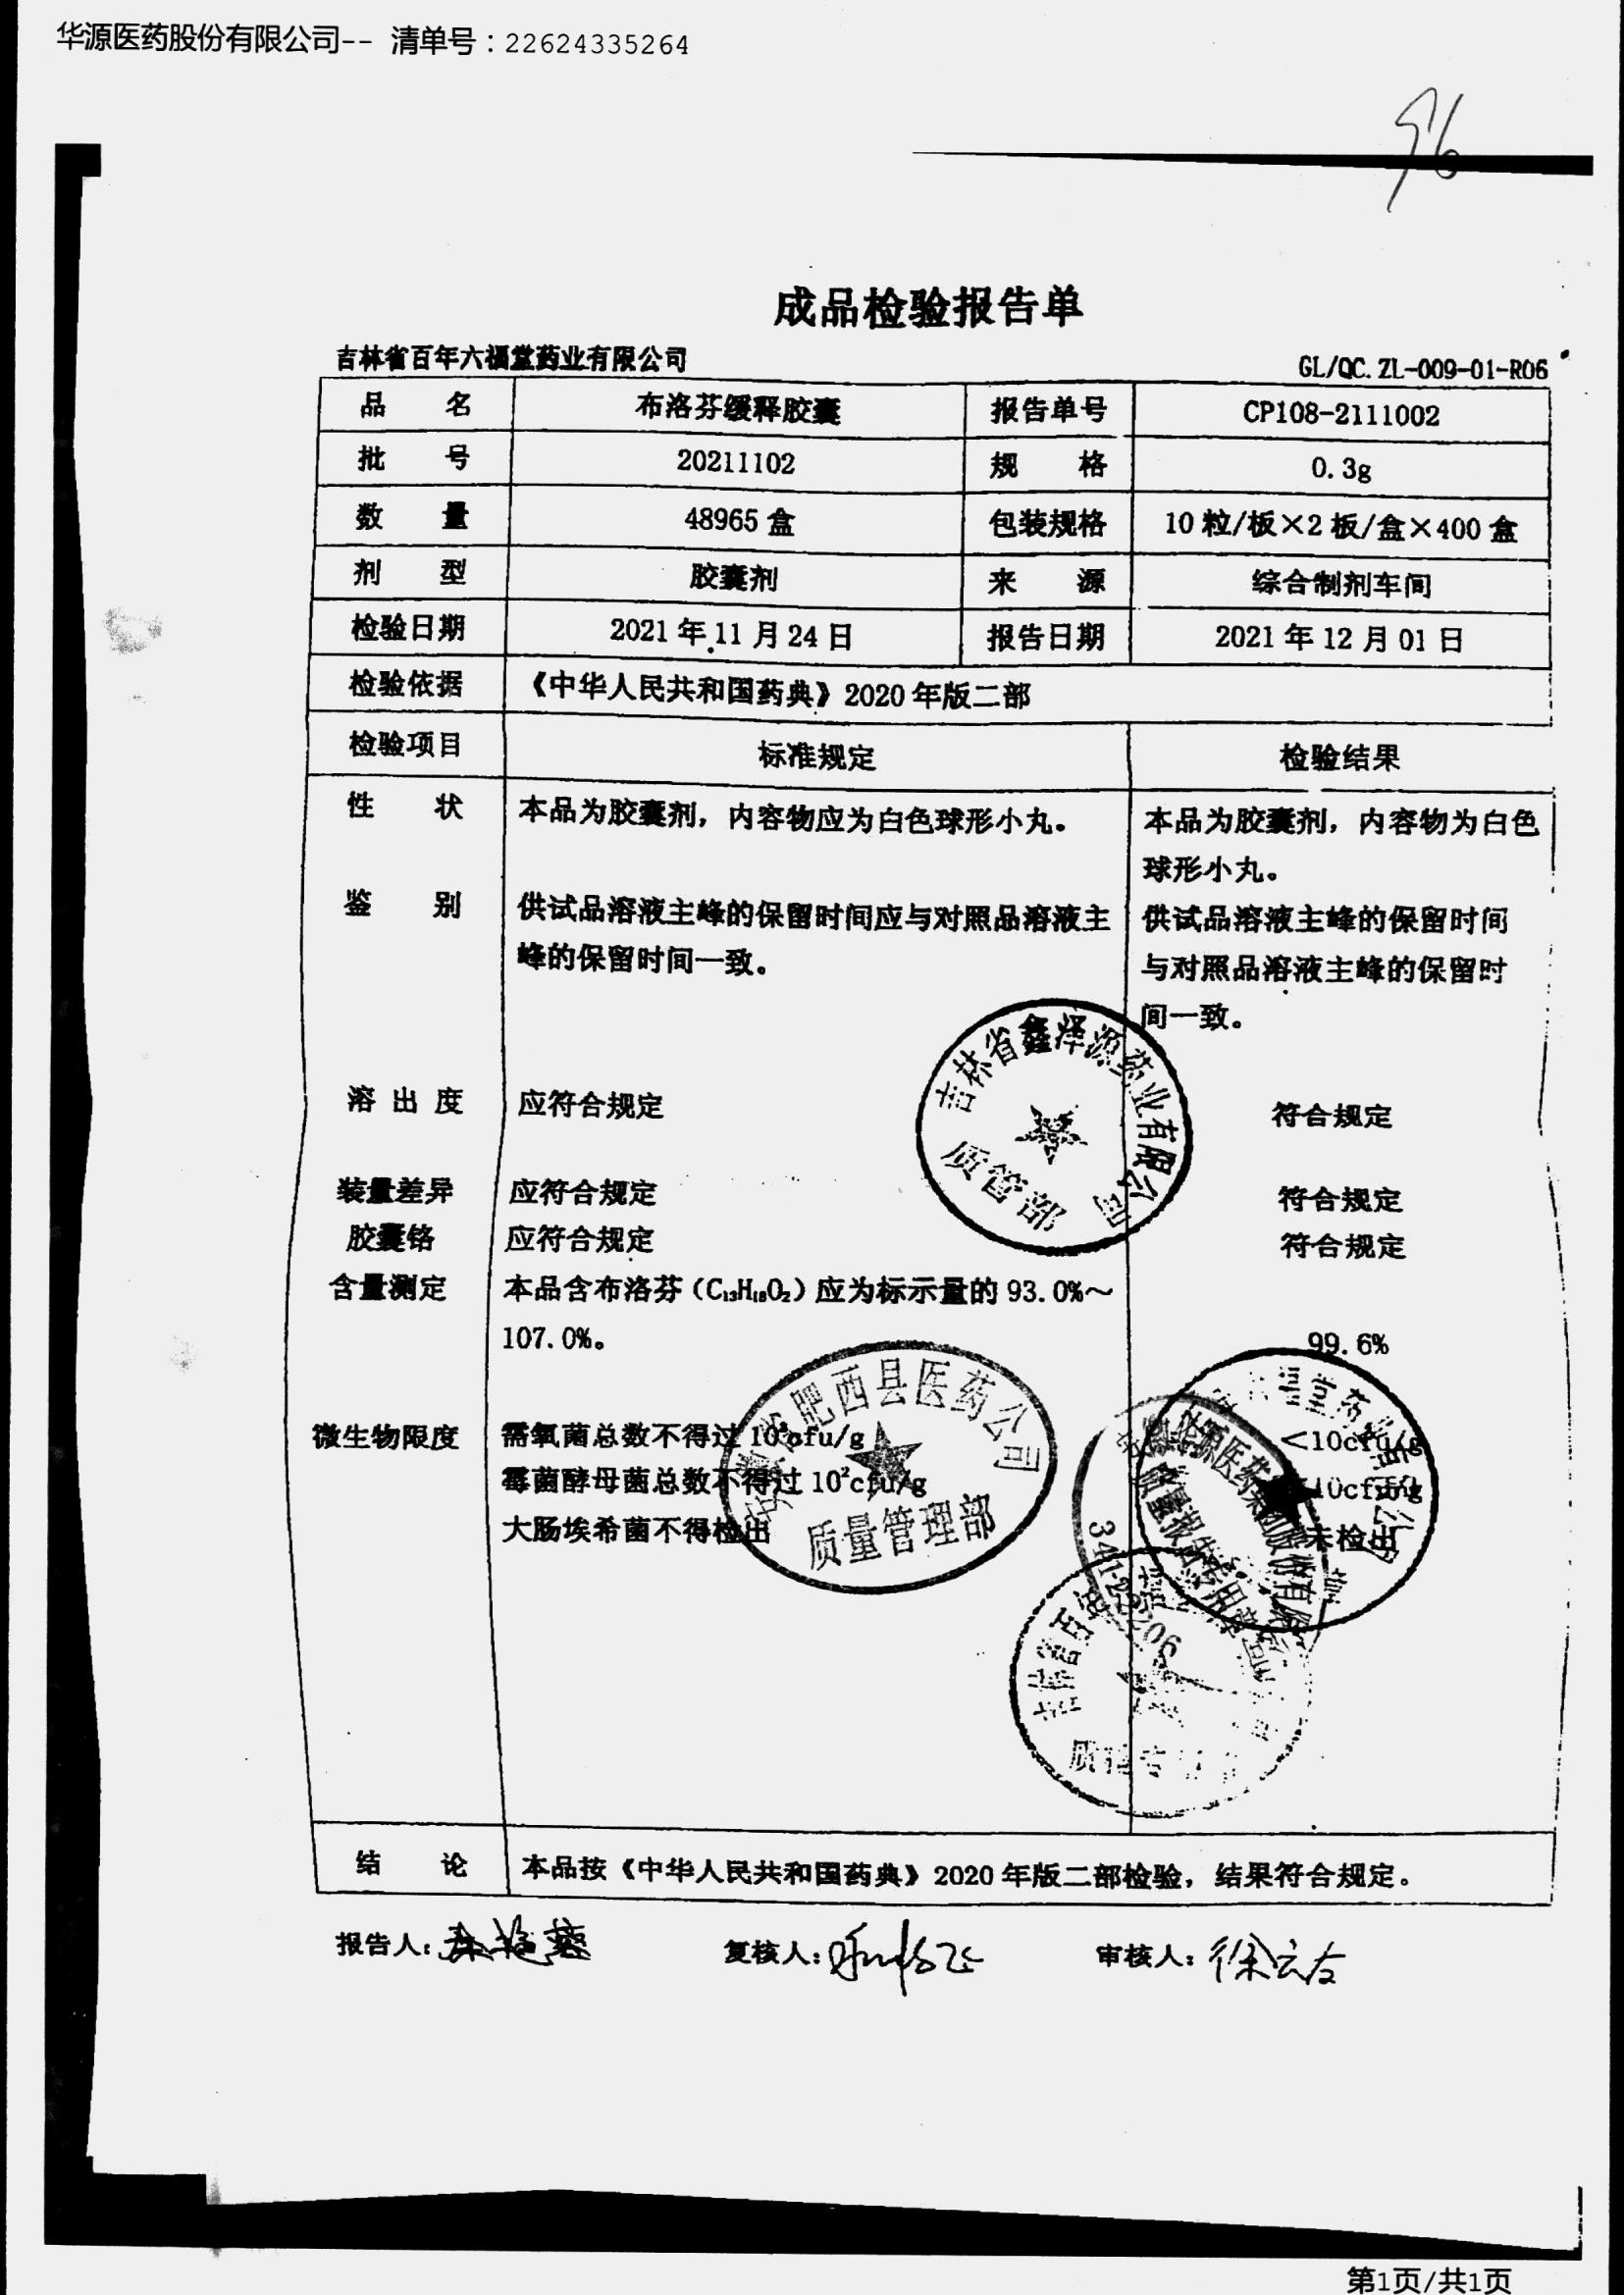 华源医药股份有限公司-- 清单号：22624335264
96
成品检验报告单
吉林省百年六福堂药业有限公司 GL/QC.ZL-009-01-R06
品 名 布洛芬缓释胶囊 报告单号 CP108-2111002
批 号 20211102 规 格 0.3g
数 量 48965 盒 包装规格 10 粒/板×2 板/盒×400 盒
剂 型 胶囊剂 来 源 综合制剂车间
检验日期 2021 年 11 月 24 日 报告日期 2021 年 12 月 01 日
检验依据 《中华人民共和国药典》2020 年版二部
检验项目 标准规定 检验结果
性 状 本品为胶囊剂，内容物应为白色球形小丸。 本品为胶囊剂，内容物为白色
球形小丸。
鉴 别 供试品溶液主峰的保留时间应与对照品溶液主 供试品溶液主峰的保留时间
峰的保留时间一致。 与对照品溶液主峰的保留时
间一致。
吉林省鑫泽源药业有限公司
质管部
溶 出 度 应符合规定 符合规定
装量差异 应符合规定 符合规定
胶囊铬 应符合规定 符合规定
含量测定 本品含布洛芬（C₁₃H₁₈O₂）应为标示量的 93.0%～
107.0%。 99.6%
安徽省肥西县医药公司
质量管理部
微生物限度 需氧菌总数不得过 10³cfu/g <10cfu/g
霉菌酵母菌总数不得过 10²cfu/g <10cfu/g
大肠埃希菌不得检出 未检出
吉林省百年
结 论 本品按《中华人民共和国药典》2020 年版二部检验，结果符合规定。
报告人： 复核人： 审核人：徐云右
第1页/共1页